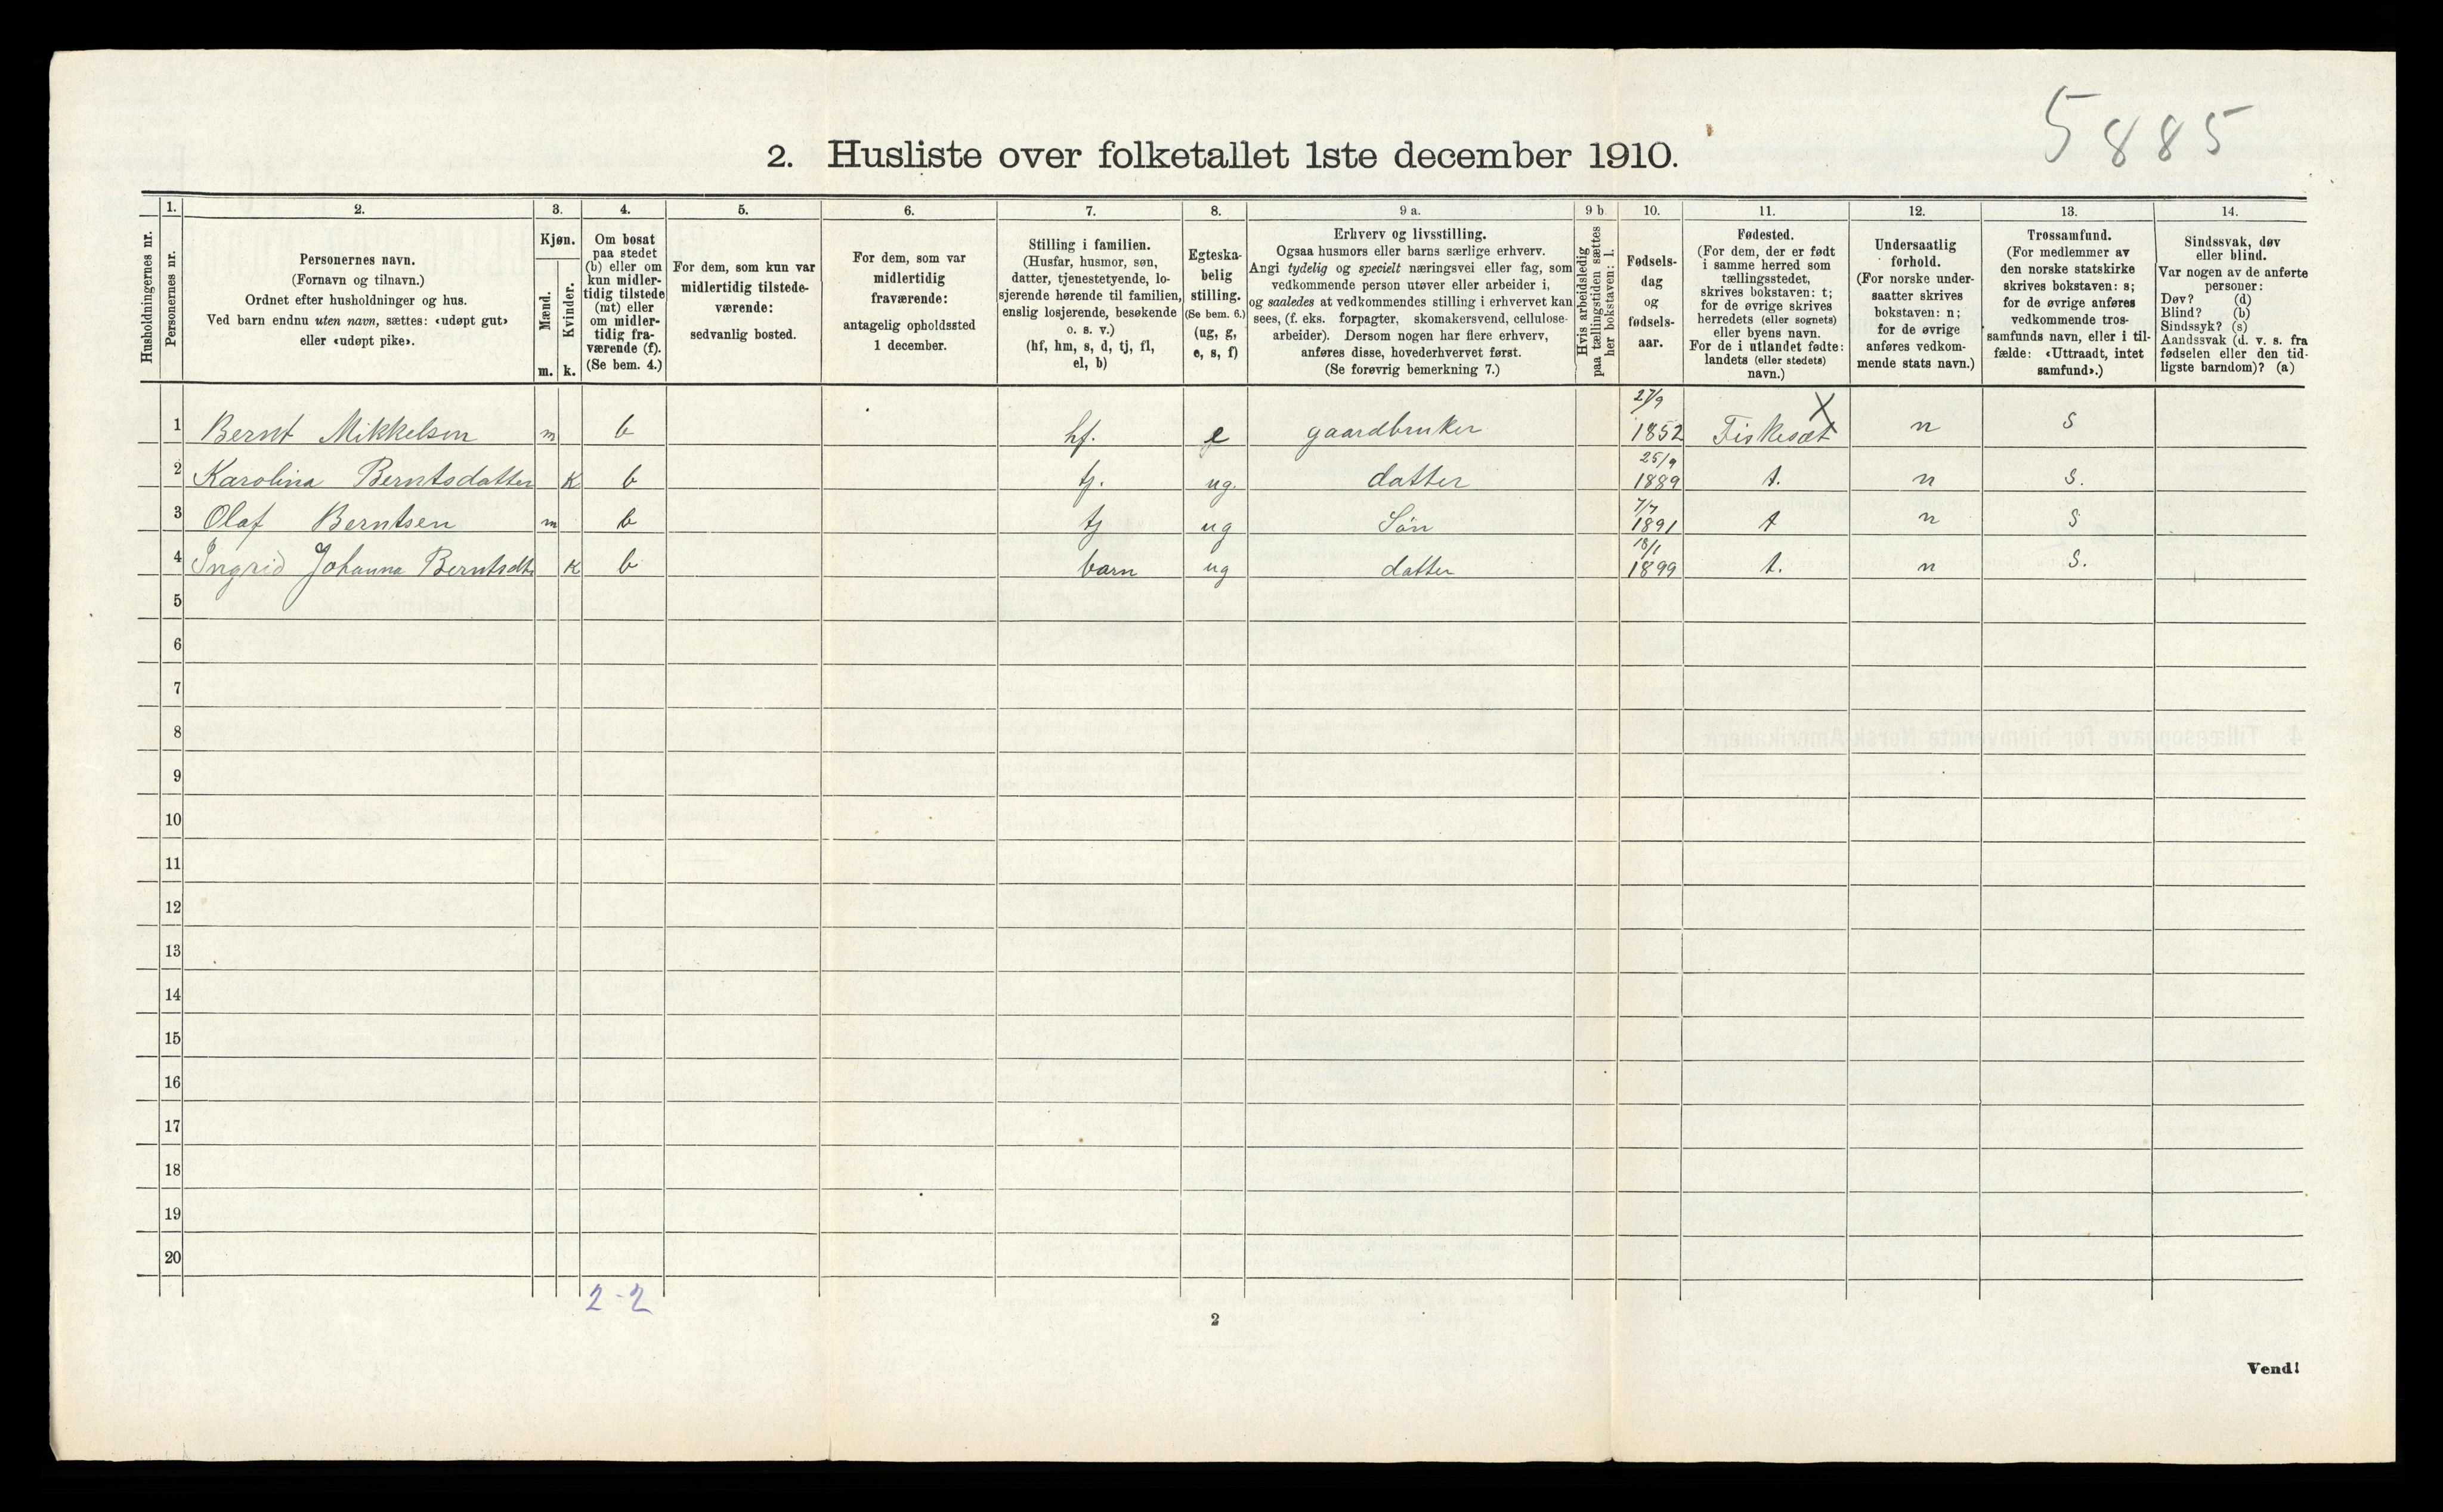 5885
2. Husliste over folketallet 1ste december 1910.
Husholdningernes nr.
1.
Personernes nr.
2.
Personernes navn.
(Fornavn og tilnavn.)
Ordnet efter husholdninger og hus.
Ved barn endnu uten navn, sættes: «udøpt gut»
eller «udøpt pike».
3.
Kjøn.
Mænd.
Kvinder.
m. k.
4.
Om bosat
paa stedet
(b) eller om
kun midler-
tidig tilstede
(mt) eller
om midler-
tidig fra-
værende (f).
(Se bem. 4.)
5.
For dem, som kun var
midlertidig tilstede-
værende:
sedvanlig bosted.
6.
For dem, som var
midlertidig
fraværende:
antagelig opholdssted
1 december.
7.
Stilling i familien.
(Husfar, husmor, søn,
datter, tjenestetyende, lo-
sjerende hørende til familien,
enslig losjerende, besøkende
o. s. v.)
(hf, hm, s, d, tj, fl,
el, b)
8.
Egteska-
belig
stilling.
(Se bem. 6.)
(ug, g,
e, s, f)
9 a.
Erhverv og livsstilling.
Ogsaa husmors eller barns særlige erhverv.
Angi tydelig og specielt næringsvei eller fag, som
vedkommende person utøver eller arbeider i,
og saaledes at vedkommendes stilling i erhvervet kan
sees, (f. eks. forpagter, skomakersvend, cellulose-
arbeider). Dersom nogen har flere erhverv,
anføres disse, hovederhvervet først.
(Se forøvrig bemerkning 7.)
9 b
Hvis arbeidsledig
paa tællingstiden sættes
her bokstaven: l.
10.
Fødsels-
dag
og
fødsels-
aar.
11.
Fødested.
(For dem, der er født
i samme herred som
tællingsstedet,
skrives bokstaven: t;
for de øvrige skrives
herredets (eller sognets)
eller byens navn.
For de i utlandet fødte:
landets (eller stedets)
navn.)
12.
Undersaatlig
forhold.
(For norske under-
saatter skrives
bokstaven: n;
for de øvrige
anføres vedkom-
mende stats navn.)
13.
Trossamfund.
(For medlemmer av
den norske statskirke
skrives bokstaven: s;
for de øvrige anføres
vedkommende tros-
samfunds navn, eller i til-
fælde: «Uttraadt, intet
samfund».)
14.
Sindssvak, døv
eller blind.
Var nogen av de anførte
personer:
Døv? (d)
Blind? (b)
Sindssyk? (s)
Aandssvak (d. v. s. fra
fødselen eller den tid-
ligste barndom)? (a)
1 Bernt Mikkelsen m b hf. e gaardbruker 27/9 1852 Fiskesæt X n s
2 Karolina Berntsdatter K b tj. ug. datter 25/9 1889 t. n s.
3 Olaf Berntsen m b tj ug Søn 7/7 1891 t n s
4 Ingrid Johanna Berntsdt. K b barn ug datter 18/1 1899 t. n s.
5
6
7
8
9
10
11
12
13
14
15
16
17
18
19
20
2-2
2
Vend!